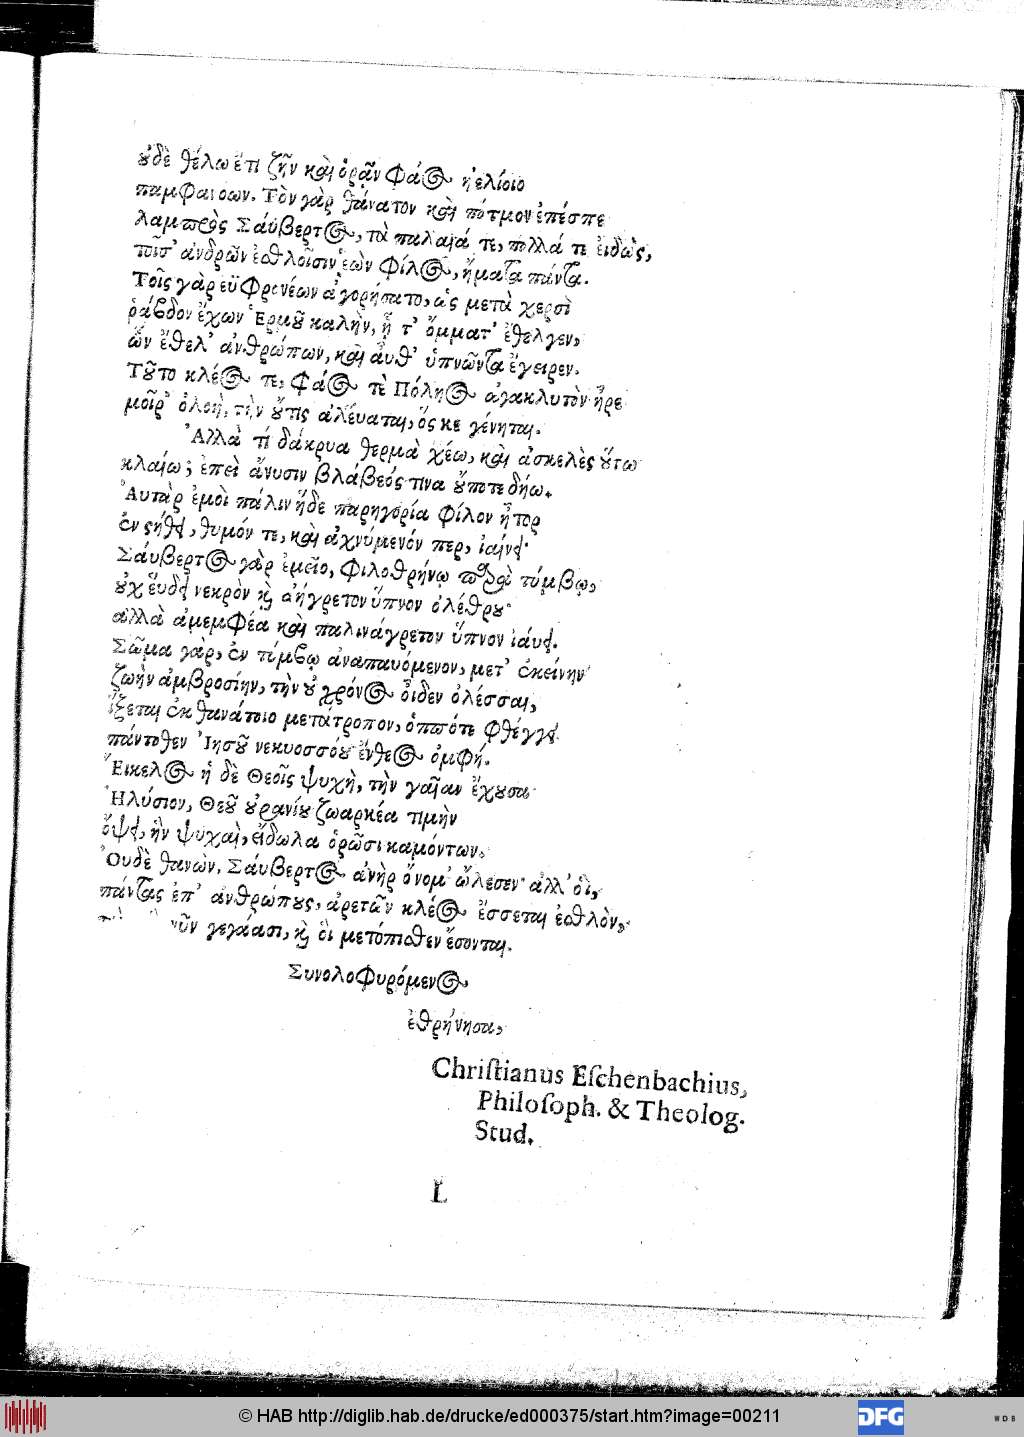 οὐδὲ θέλω ἔτι ζῆν καὶ ὁρᾷν φάος ἠελίοιο
παμφαιοων. Τὸν γὰρ θάνατον καὶ πότμον ἐπέσπε
λαμπρὸς Σάυβερτος, τὰ παλαιά τε, πολλά τε ἐιδὼς,
τοῖσ' ἀνδρῶν ἐσθλοῖσιν ἑὼν φίλος, ἤματα πάντα.
Τοῖς γὰρ ἐϋφρενέων ἀγορήσατο, ὡς μετὰ χερσὶ
ῥάβδον ἔχων Ἑρμοῦ καλὴν, ᾗ τ' ὄμματ' ἔθελγεν,
ὧν ἔθελ' ἀνθρώπων, καὶ ἀυθ' ὑπνῶντα ἔγειρεν.
Τοῦτο κλέος τε, φάος τὲ Πόληος ἀγακλυτὸν ᾗρε
μοῖρ' ὀλοὴ, τὴν οὔτις ἀλέυαται, ὅς κε γένηται.
Ἀλλὰ τί δάκρυα θερμὰ χέω, καὶ ἀσκελὲς οὕτω
κλαίω; ἐπεὶ ἄνυσιν βλάβεός τινα οὔποτε δήω.
Ἀυτὰρ ἐμοὶ πάλιν ἥδε παρηγορία φίλον ἦτορ
ἐν στήθει, θυμόν τε, καὶ ἀχνύμενόν περ, ἰαίνει·
Σάυβερτος γὰρ ἐμεῖο, φιλοθρήνῳ παρὰ τύμβῳ,
οὐχ ἕυδει νεκρὸν καὶ ἀήγρετον ὕπνον ὀλέθρου·
ἀλλὰ ἀμεμφέα καὶ παλινάγρετον ὕπνον ἰάυει.
Σῶμα γὰρ, ἐν τύμβῳ ἀναπαυόμενον, μετ' ἐκείνην
ζωὴν ἀμβροσίην, τὴν οὐ χρόνος οἶδεν ὀλέσσαι,
ἵξεται ἐκ θανάτοιο μετάτροπον, ὁπότε φθέγγει
πάντοθεν Ἰησοῦ νεκυοσσόου ἔνθεος ὀμφή.
Ἔικελος ἡ δὲ Θεοῖς ψυχὴ, τὴν γαῖαν ἔχουσα
Ἠλύσιον, Θεοῦ οὐρανίου ζωαρκέα τιμὴν
ὄψει, ἣν ψυχαὶ, εἴδωλα ὁρῶσι καμόντων.
Ὀυδὲ θανὼν, Σάυβερτος ἀνὴρ ὄνομ' ὤλεσεν· ἀλλ' ὁἱ,
πάντας ἐπ' ἀνθρώπους, ἀρετῶν κλέος ἔσσεται ἐσθλὸν,
νῦν γεγάασι, καὶ ὃι μετόπισθεν ἔσονται.
Συνολοφυρόμενος
ἐθρήνησα,
Chriſtianus Eſchenbachius,
Philoſoph. & Theolog.
Stud.
L
© HAB http://diglib.hab.de/drucke/ed000375/start.htm?image=00211
DFG
WDB